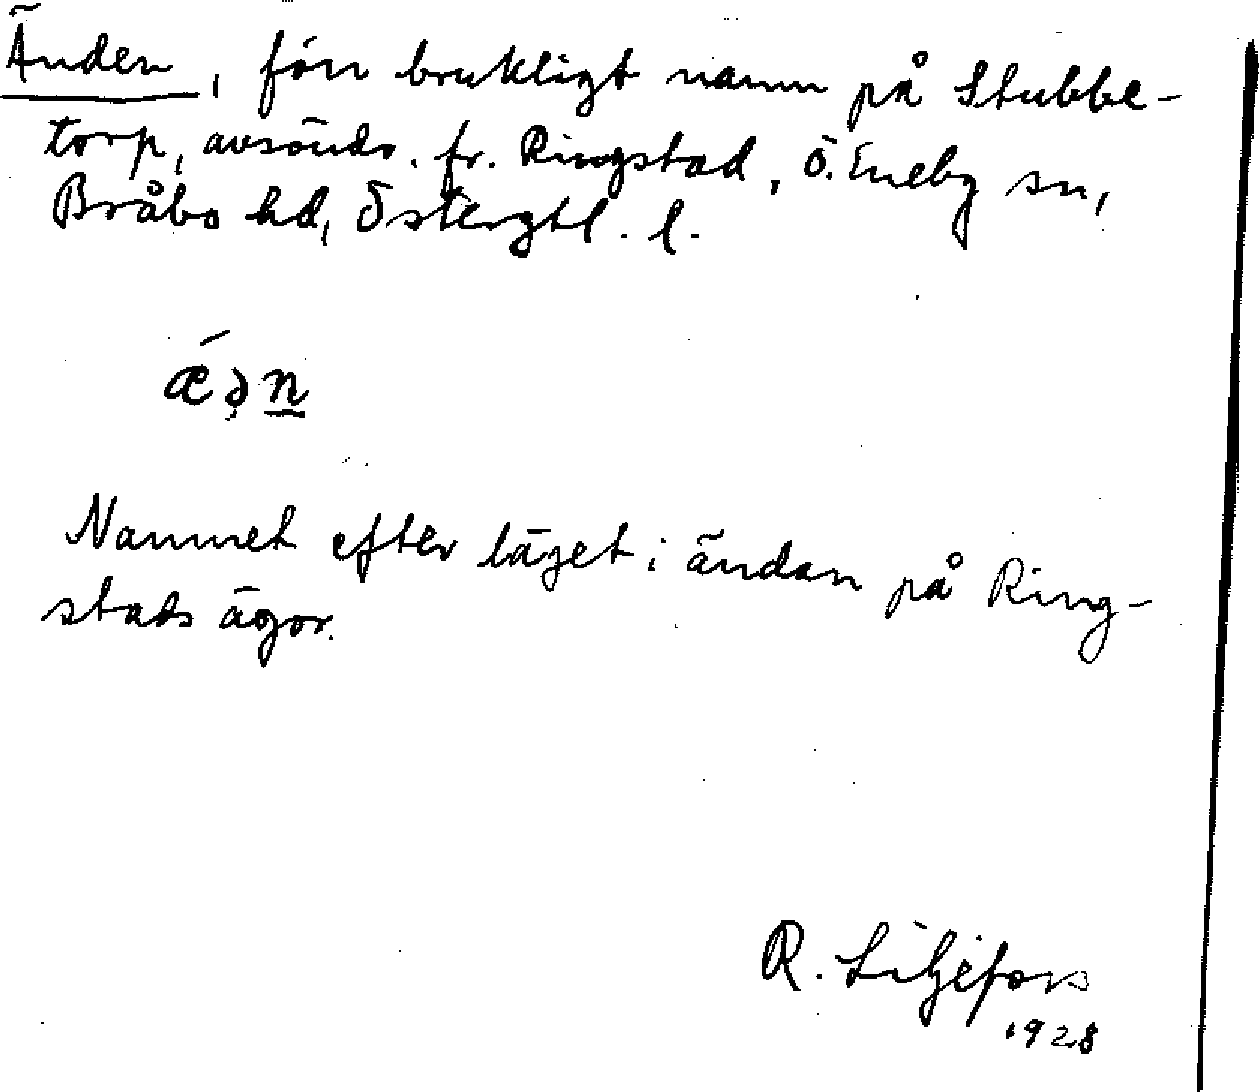 Änden, förr brukligt namn på Stubbe-
torp, avsöndr. fr. Ringstad, Ö. Eneby sn,
Bråbo hd, Östergtl. l.
Namnet efter läget i ändan på Ring-
stads ägor.
R. Liljefors
1928